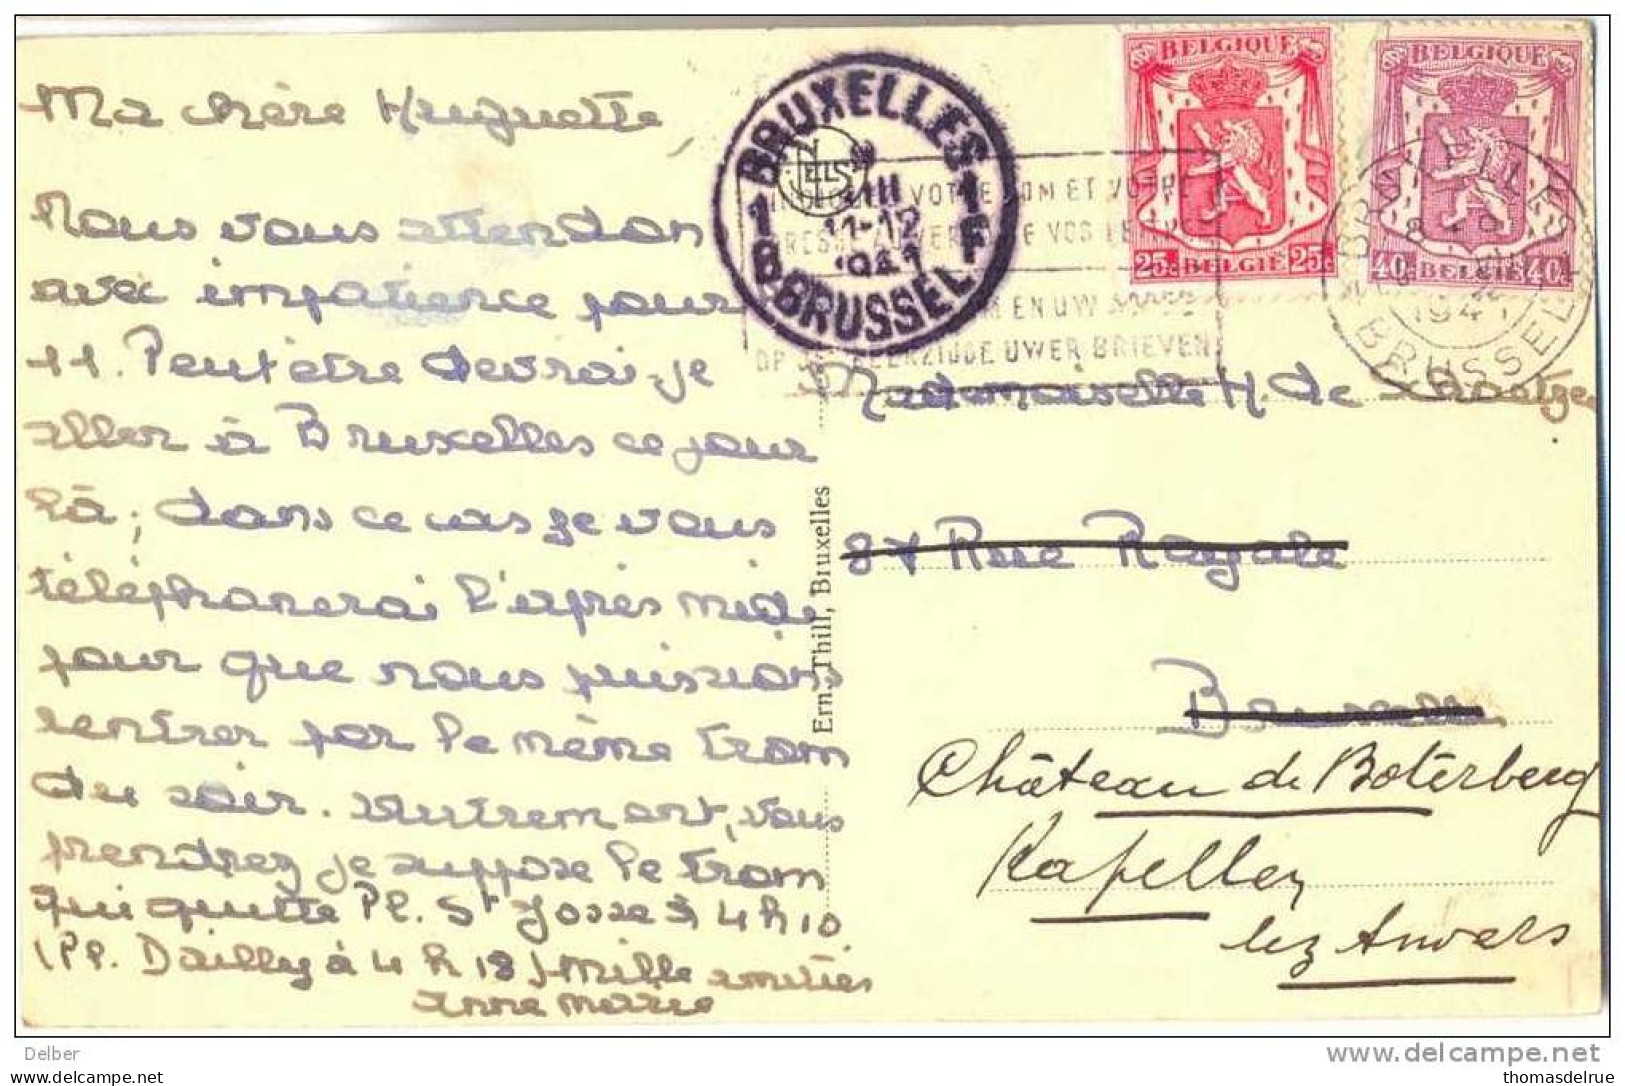 Ma chère Huguette
Nous vous attendons
avec impatience pour
11. Peut être devrai-je
aller à Bruxelles ce jour
là; dans ce cas je vous
téléphonerai l'après midi
pour que nous puissions
rentrer par le même tram
du soir. Autrement, vous
prendrez je suppose le tram
qui quitte Pl. St Josse à 4 h 10.
(Pl. Dailly à 4 h 18) Mille amitiés
Anne Marie
BRUXELLES
1 1
VIII
11-12
1941
B F
BRUSSEL
NELS
VOTRE NOM ET VOTRE
VOS
EN UW
OP UWER BRIEVEN
BELGIQUE
25c BELGIE 25c
BELGIQUE
40c BELGIE 40c
BRUXELLES
8
194
BRUSSEL
Ern. Thill, Bruxelles
Mademoiselle H. de
87 Rue Royale
Bruxelles
Château de Boterberg
Kapellen
lez Anvers
Delber
delcampe.net
thomasdelrue